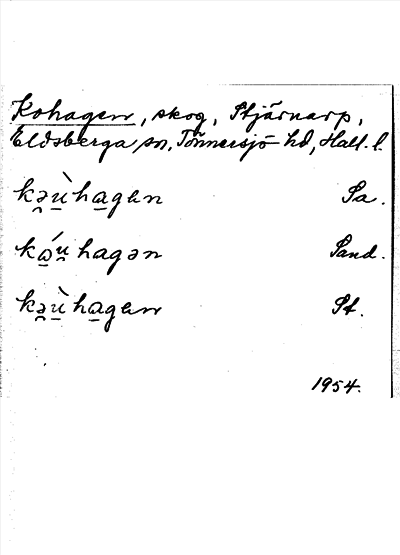 Kohagen, skog, Stjärnarp,
Eldsberga sn, Tönnersjö hd, Hall. l.
kə̯ù̠ha̠gen Sa.
ka̠ú̯hagən Sand.
kə̯ù̠ha̠gen St.
1954.